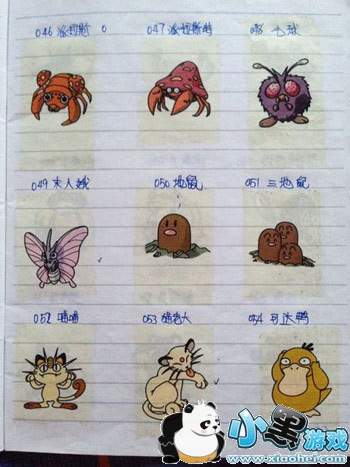 046 派拉斯
047 派拉斯特
048 毛球
049 末入蛾
050 地鼠
051 三地鼠
052 喵喵
053 猫老大
054 可达鸭
小黑游戏
www.xiaohei.com